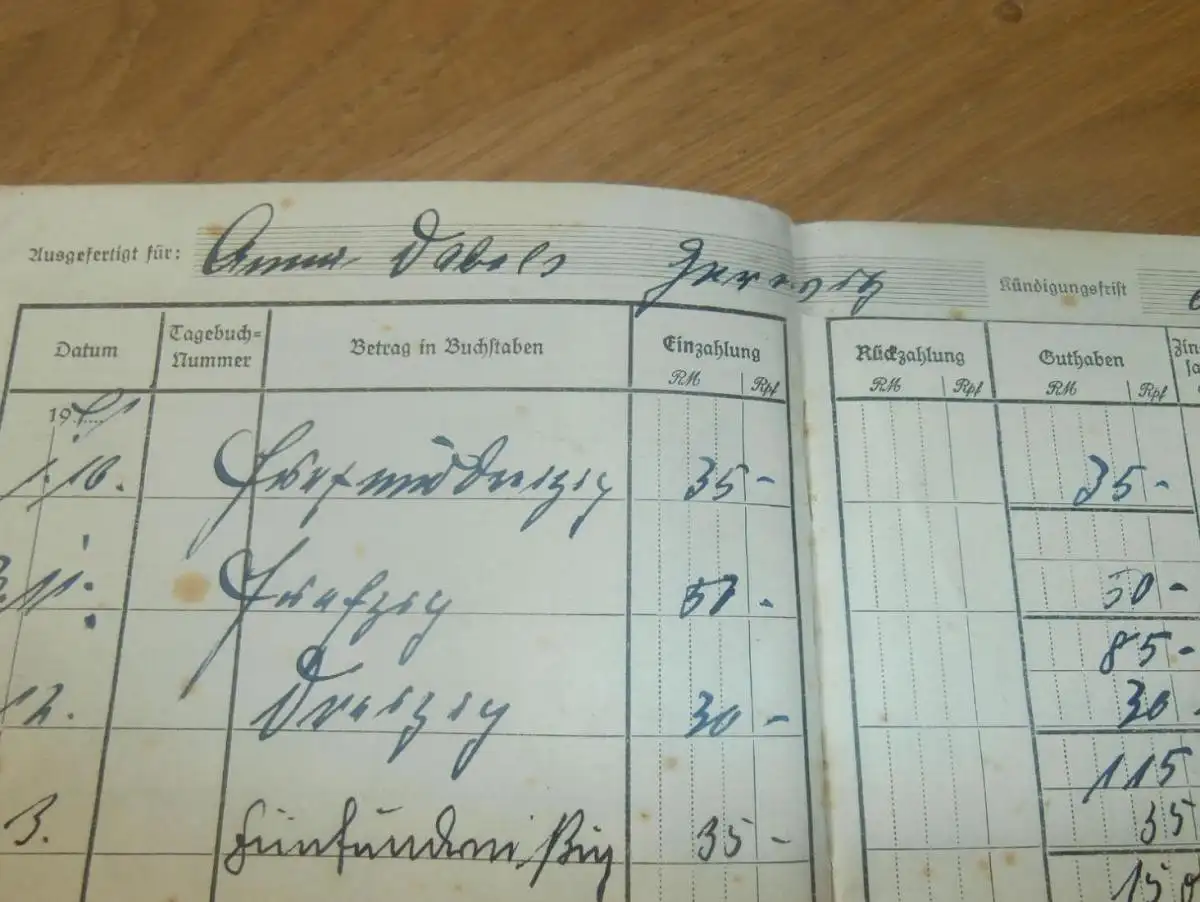 Ausgefertigt für: Anna Dabels
Kündigungsfrist
Datum Tagebuch-Nummer Betrag in Buchstaben Einzahlung Rückzahlung Guthaben
RM Rpf RM Rpf RM Rpf
19
1.10. Fünfunddreizig 35 - 35 -
11. Fünfzig 50 - 50 -
85 -
12. Dreizig 30 - 30 -
115
3. Fünfunddreißig 35 - 35
15